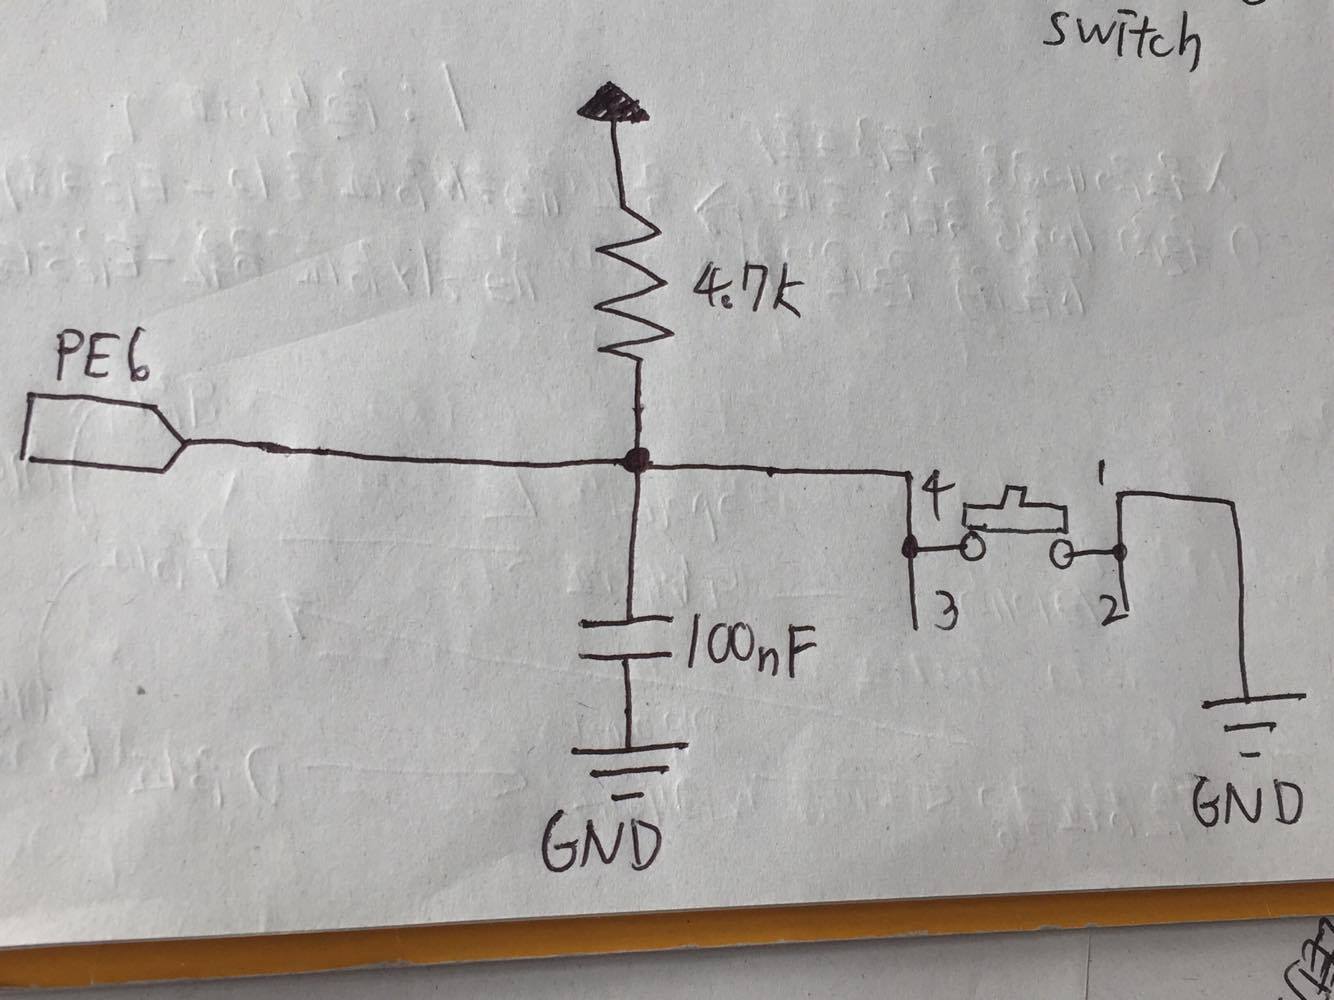 switch
4.7k
PE6
4
1
3
2
100nF
GND
GND